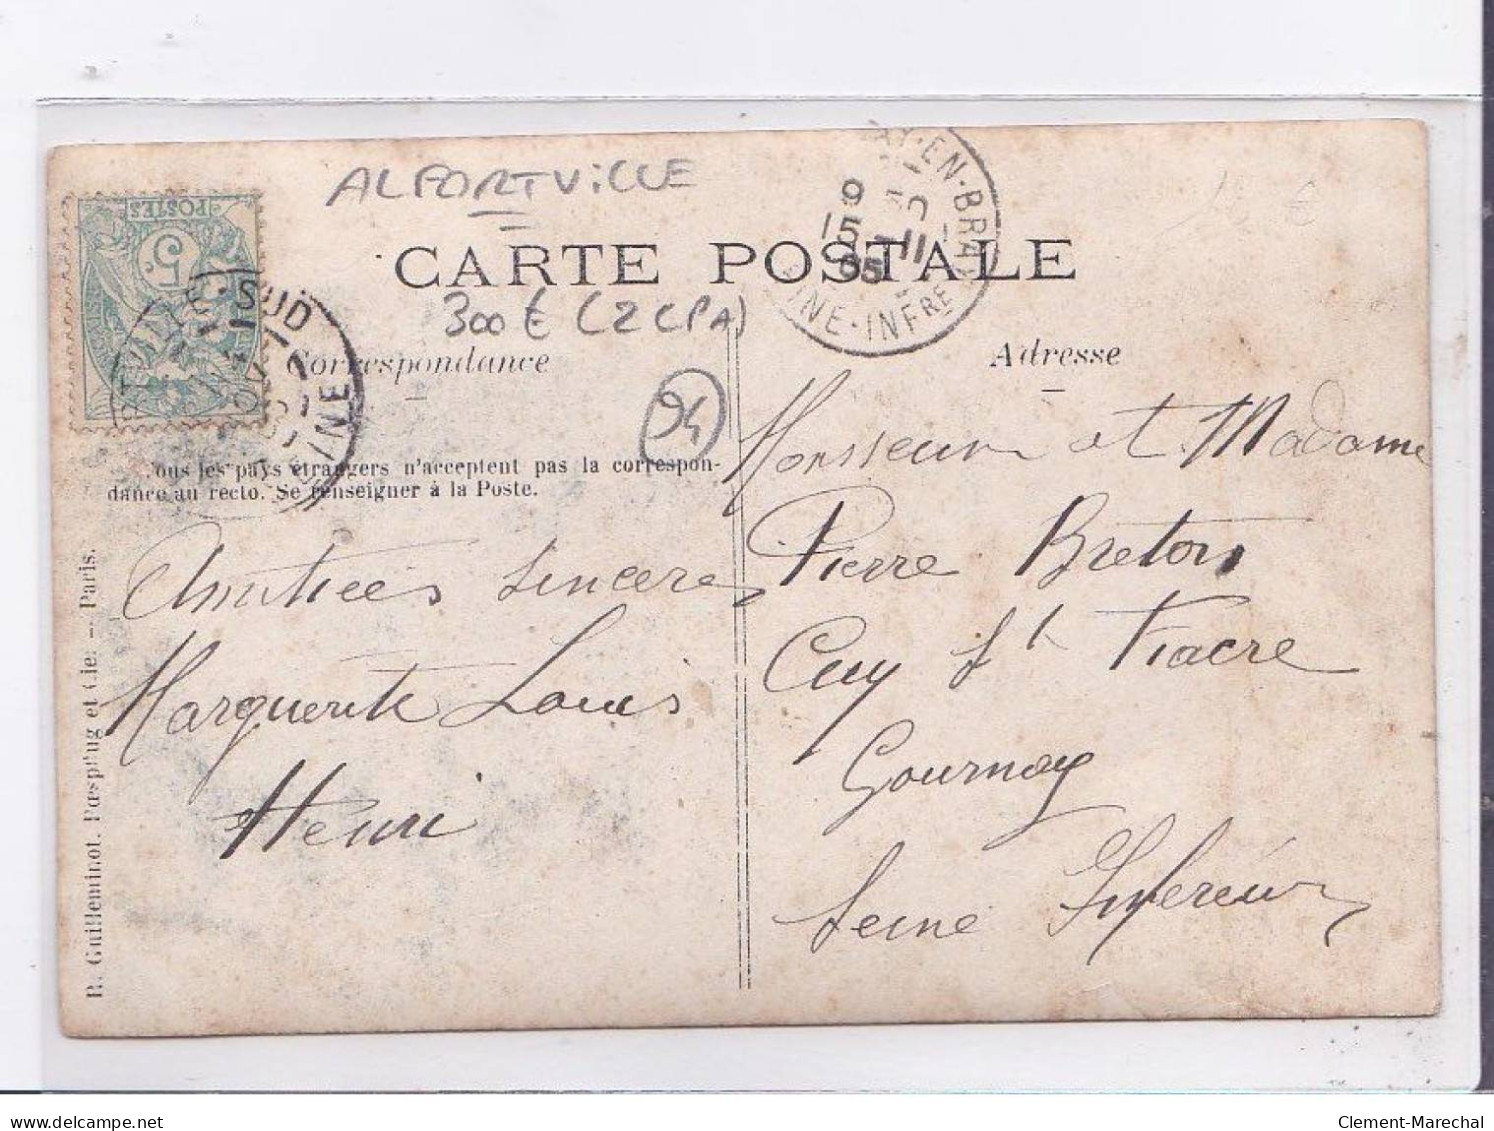 ALFORTVILLE
POSTES
5c
SUD
INE
AY-EN-BRAY
INE-INFRE
9
15-11
05
CARTE POSTALE
300 € (2 CPA)
Correspondance
Adresse
94
Tous les pays étrangers n'acceptent pas la correspon-
dance au recto. Se renseigner à la Poste.
Amitiées sincères
Marguerite Louis
Henri
Monsieur et Madame
Pierre Breton
Cuy St Fiacre
Gournay
Seine Inférieur
R. Guilleminot, Bœspflug et Cie. — Paris.
www.delcampe.net
Clement-Marechal